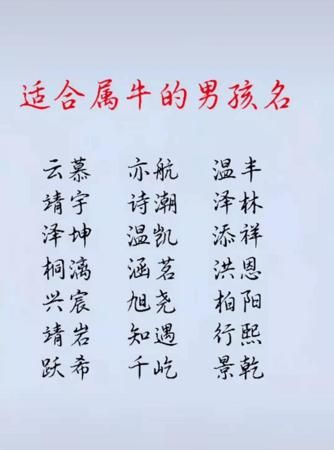 适合属牛的男孩名
云慕 亦航 温丰
靖宇 诗潮 泽林
泽坤 温凯 添祥
桐漓 涵茗 洪恩
兴宸 旭尧 柏阳
靖岩 知遇 行熙
跃希 千屹 景乾